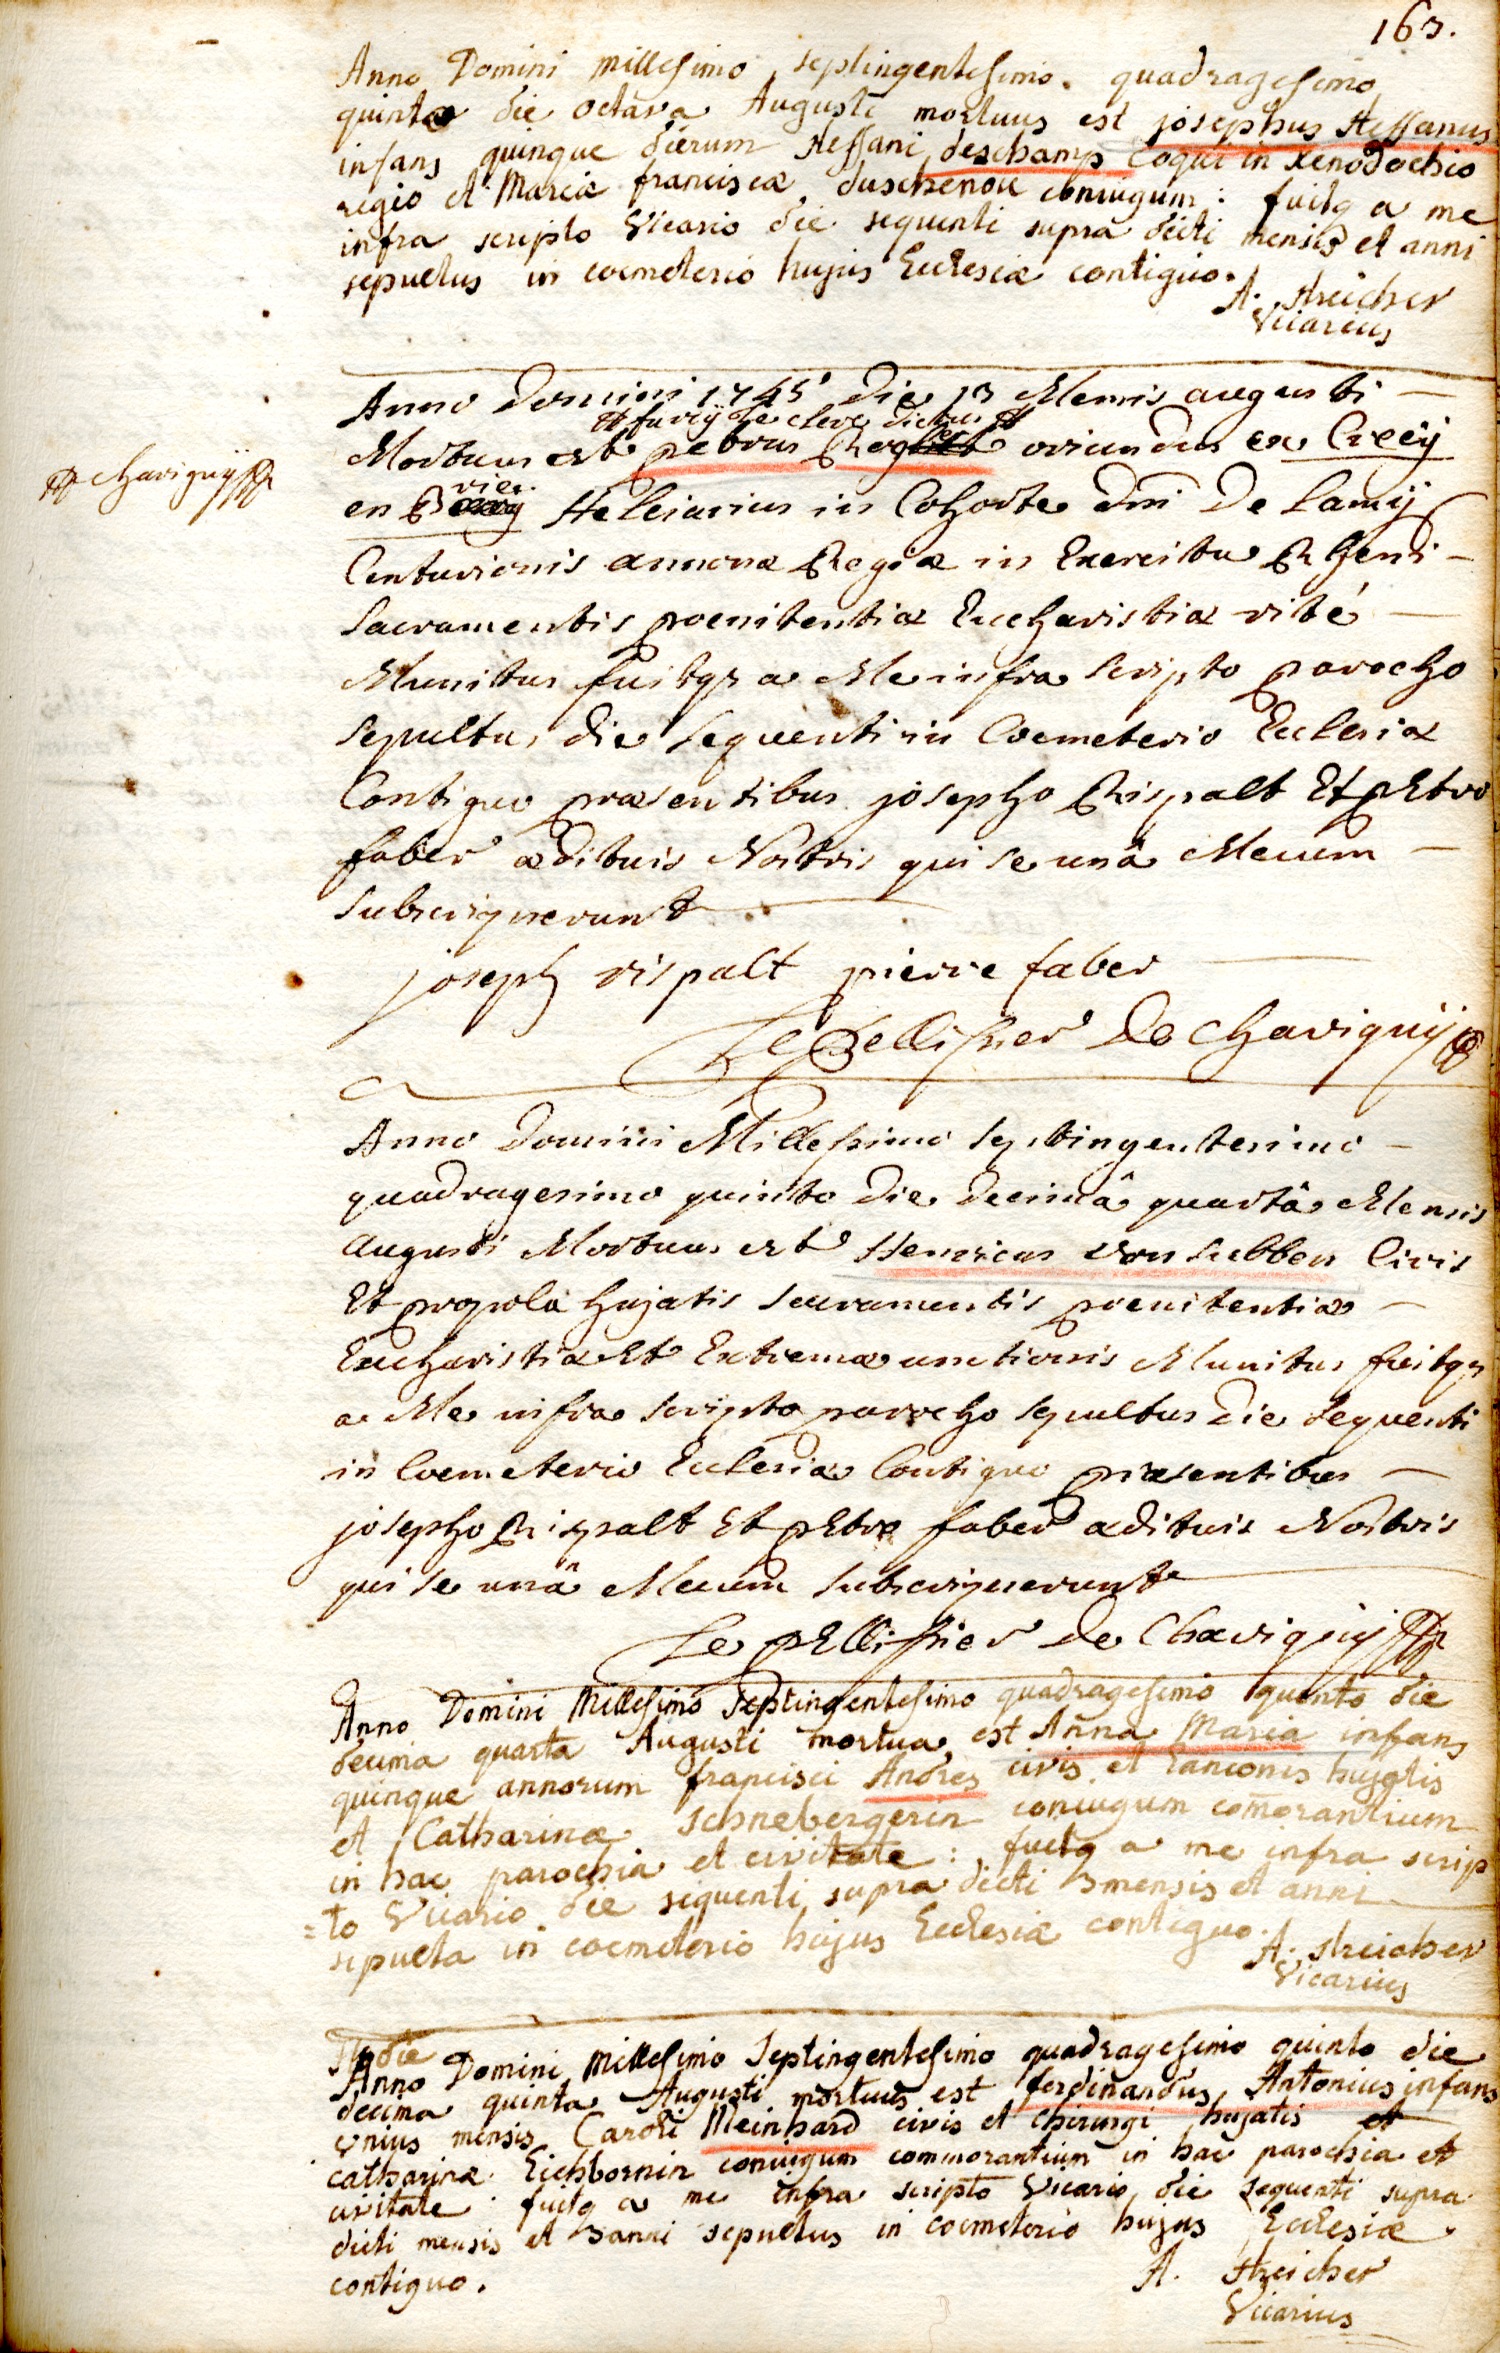 163.
Anno Domini millesimo septingentesimo quadragesimo
quinto die octava Augusti mortuus est josephus steffanus
infans quinque dierum steffani deschamp coqui in xenodochio
regio et Mariæ franciscæ duschenou coniugum: fuitq a me
infra scripto Vicario die sequenti supra dicti mensis et anni
sepultus in coemeterio hujus Ecclesiæ contiguo.
A. streicher
Vicarius
Anno Domini 1745 die 13 Mensis augusti
furcÿ le clerc dictus
Mortuus est petrus oriundus ex Crecÿ
chavignÿ
en Brie Helciarius in Cohorte dni De Lamÿ
Centurionis annonæ Regiæ in Exercitu Rheni
Sacramentis poenitentiæ Eucharistiæ rité
Munitus fuitq a Me infra scripto parocho
sepultus die sequenti in Coemeterio Ecclesiæ
Contiguo præsentibus josepho Rispalt Et pEtro
faber ædituis Nostris qui se unâ Mecum
subscripserunt
joseph rispalt pierre faber
Le Pellissier De chavignÿ
Anno Domini Millessimo septingentesimo
quadragesimo quinto die decimâ quartâ Mensis
augusti Mortuus est Henricus von Lubben Civis
Et propola hujatis sacramentis poenitentiæ
Eucharistiæ Et Extremæ unctionis Munitus fuitq
a Me infra scripto parocho sepultus die sequenti
in Coemeterio Ecclesiæ Contiguo præsentibus
josepho Rispalt Et pEtro faber ædituis Nostris
qui se unâ Mecum subscripserunt
Le pEllissier de Chavignÿ
Anno Domini Millesimo Septingentesimo quadragesimo quinto die
decima quarta Augusti mortua est Anna Maria infans
quinque annorum francisci Andres civis et Lanionis hujatis
et Catharinæ Schnebergerin coniugum comorantium
in hac parochia et civitate: fuitq a me infra scrip
=to Vicario die sequenti supra dicti mensis et anni
sepulta in coemeterio hujus Ecclesiæ contiguo.
A. streicher
Vicarius
Anno Domini Millesimo Septingentesimo quadragesimo quinto die
decima quinta Augusti mortuus est ferdinandus Antonius infans
unius mensis Caroli Meinhard civis et chirurgi hujatis et
catharinæ Eichhornin coniugum commorantium in hac parochia et
civitate: fuitq a me infra scripto Vicario die sequenti supra
dicti mensis et anni sepultus in coemeterio hujus Ecclesiæ
contiguo.
A. streicher
Vicarius